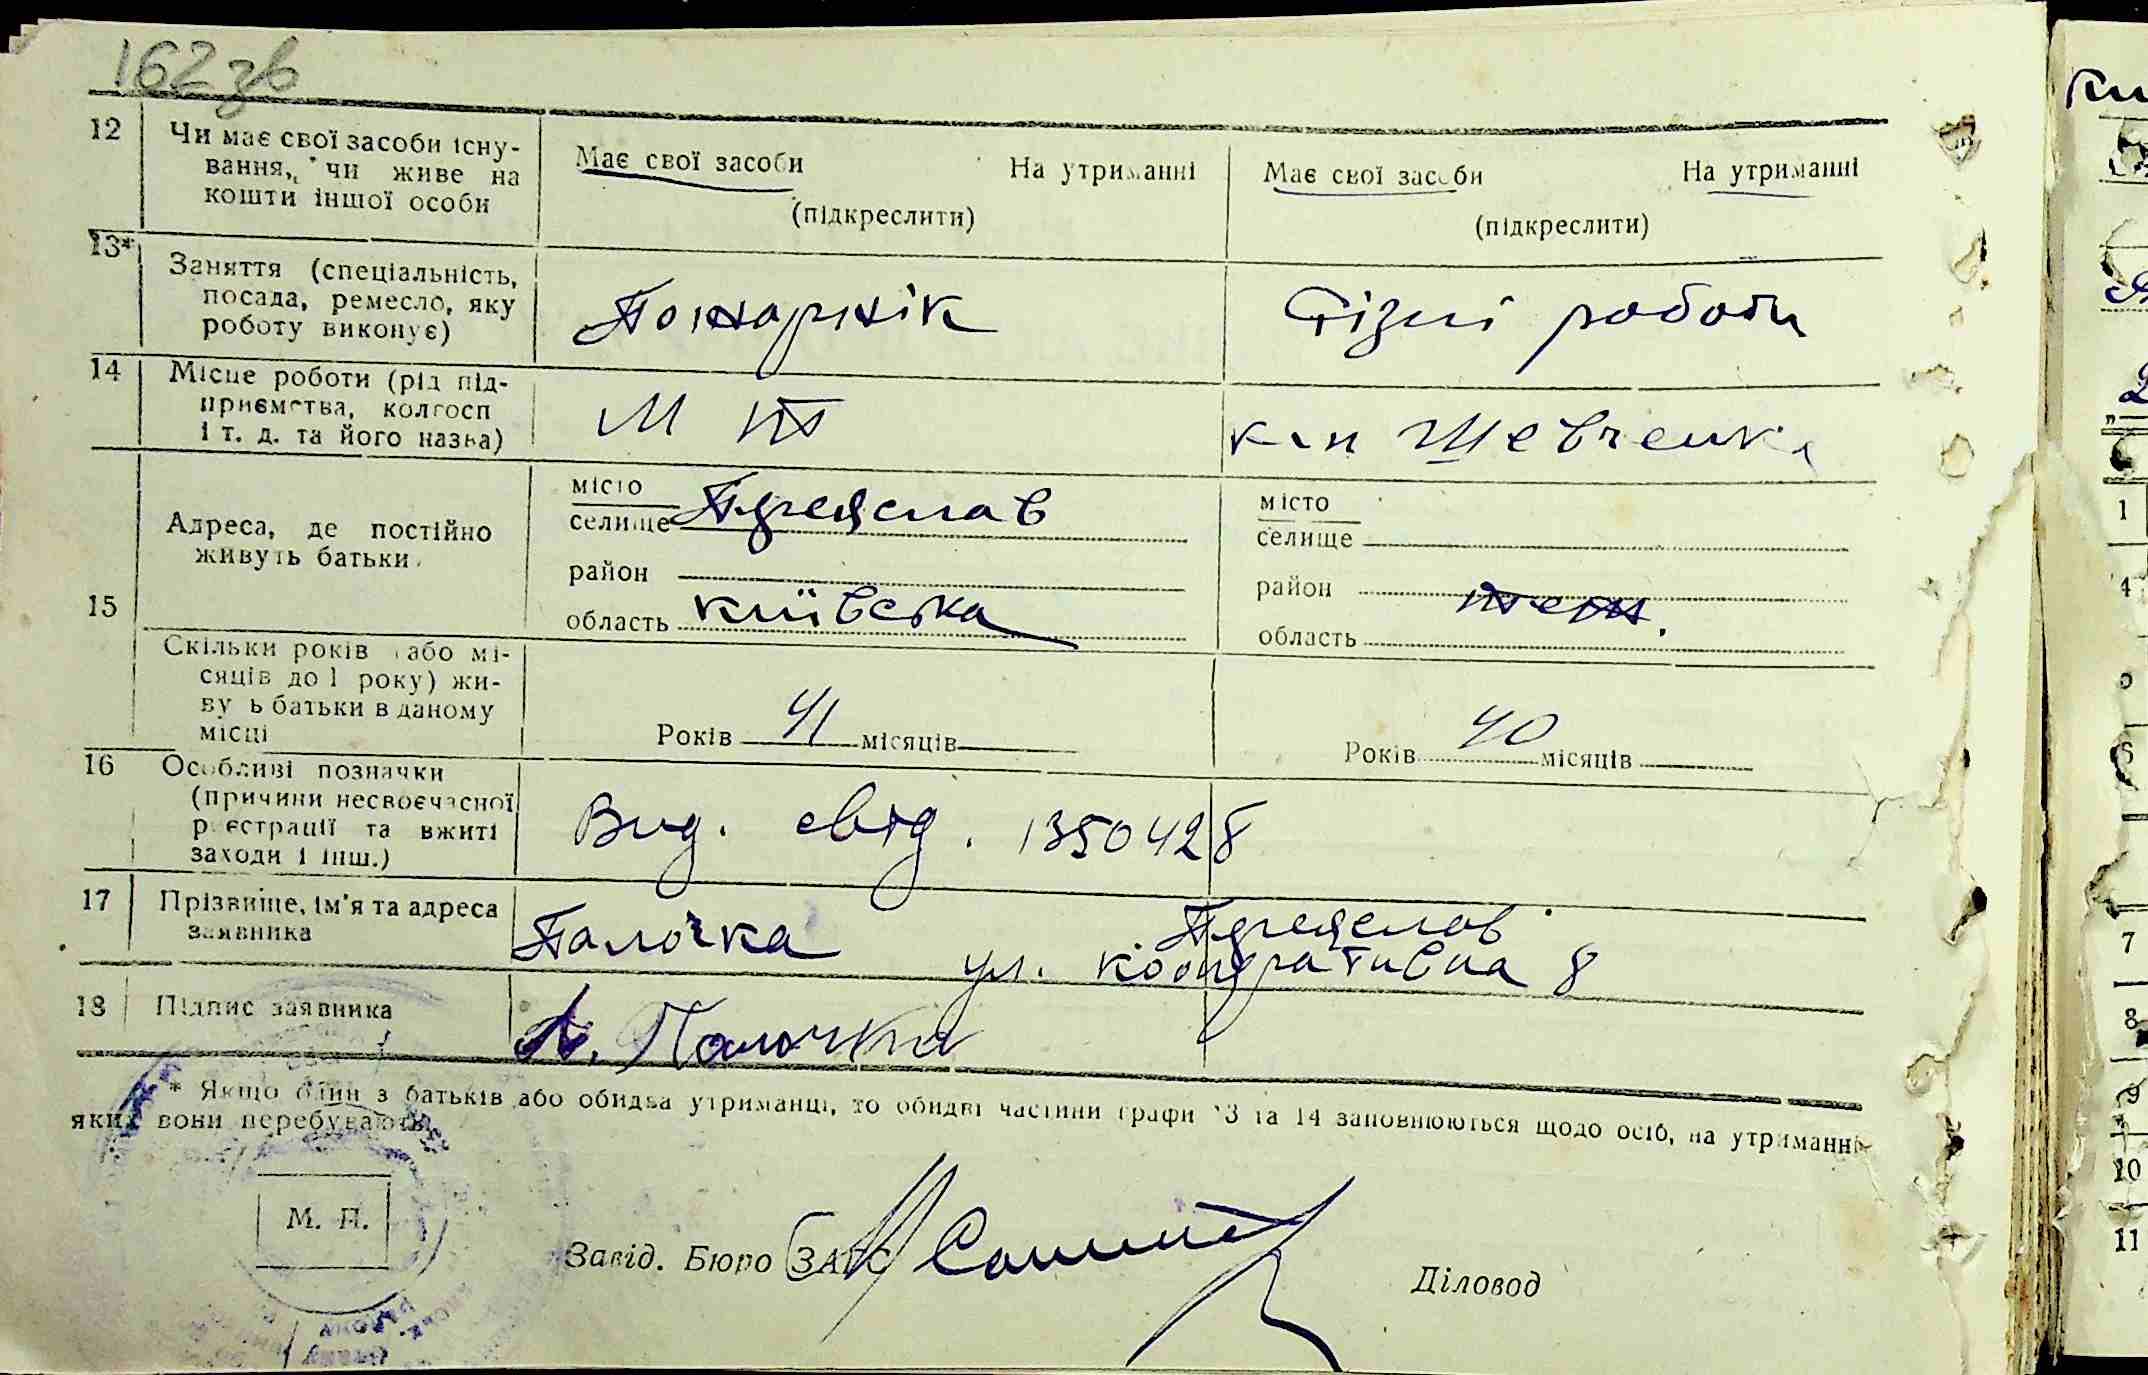 162 зв
12 Чи має свої засоби існу- Має свої засоби На утриманні Має свої засоби На утриманні
вання, чи живе на
кошти іншої особи (підкреслити) (підкреслити)
13* Заняття (спеціальність,
посада, ремесло, яку Пожарнік Різні роботи
роботу виконує)
14 Місце роботи (рід під-
приємства, колгосп М Шевченка
і т. д. та його назва)
місто місто
Адреса, де постійно селище Переяслав селище
живуть батьки район район
15 область київська область
Скільки років або мі-
сяців до 1 року) жи-
ву ь батьки в даному
місці Років 41 місяців Років 40 місяців
16 Особливі позначки
(причини несвоєчасної
реєстрації та вжиті Вид. свід. 1350428
заходи і інш.)
17 Прізвище, ім'я та адреса Палочка Переяслав
заявника ул. кооперативна 8
18 Підпис заявника А. Палочка
* Якщо один з батьків або обидва утриманці, то обидві частини графи 13 та 14 заповнюються щодо осіб, на утриманні
яких вони перебувають.
М. П.
Завід. Бюро ЗАГС Діловод
1
4
6
7
8
9
10
11